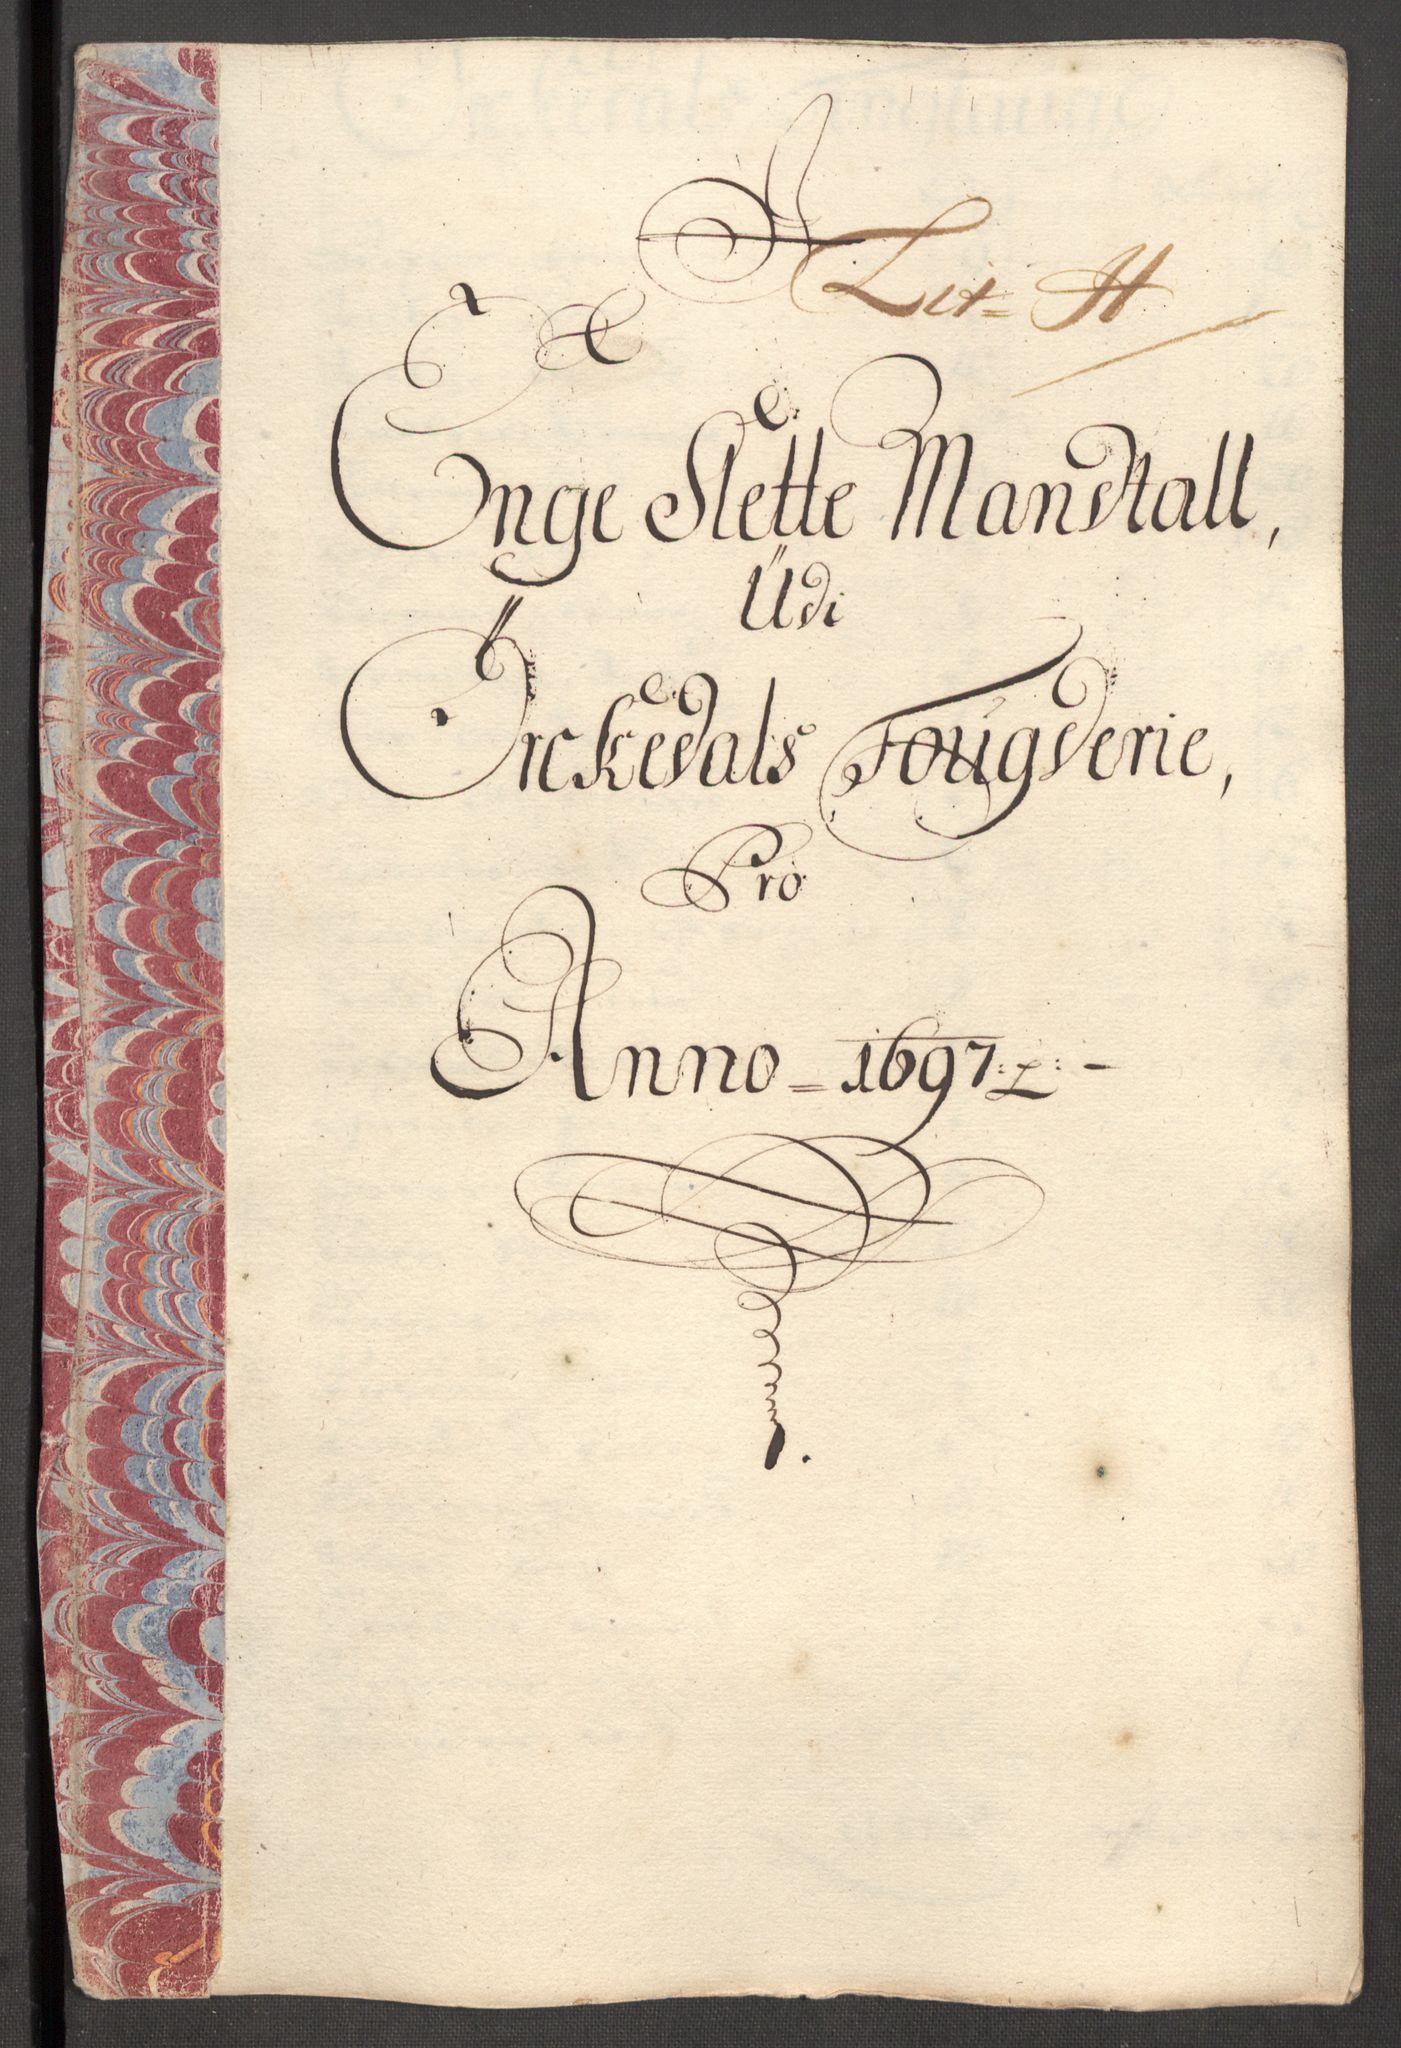 Lit= H
Enge Slette Mandtall,
Udi
Örckedals Fougderie,
Pro
Anno = 1697: